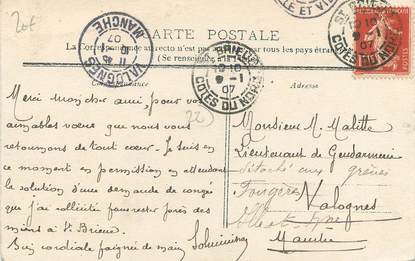 20f
CARTE POSTALE
La Correspondance au recto n'est pas
par tous les pays étrangers
(Se renseigner à la
Correspondance
Adresse
VALOGNES
MANCHE
11 45
07
ST BRIEUC
10 10
9 - 1
07
COTES DU NORD
ST BRIEUC
10 10
9 - 1
07
COTES DU NORD
LLE ET VIL
22
Merci mon cher ami pour vos
aimables vœux que nous vous
retournons de tout cœur. Je suis en
ce moment en permission en attendant
la solution d'une demande de congé
que j'ai sollicité pour rester près des
miens à St Brieuc.
Bien cordiale poignée de main
Monsieur M. Malitte
Lieutenant de Gendarmerie
détaché aux grèves
Fougères
Valognes
Ille et
Manche